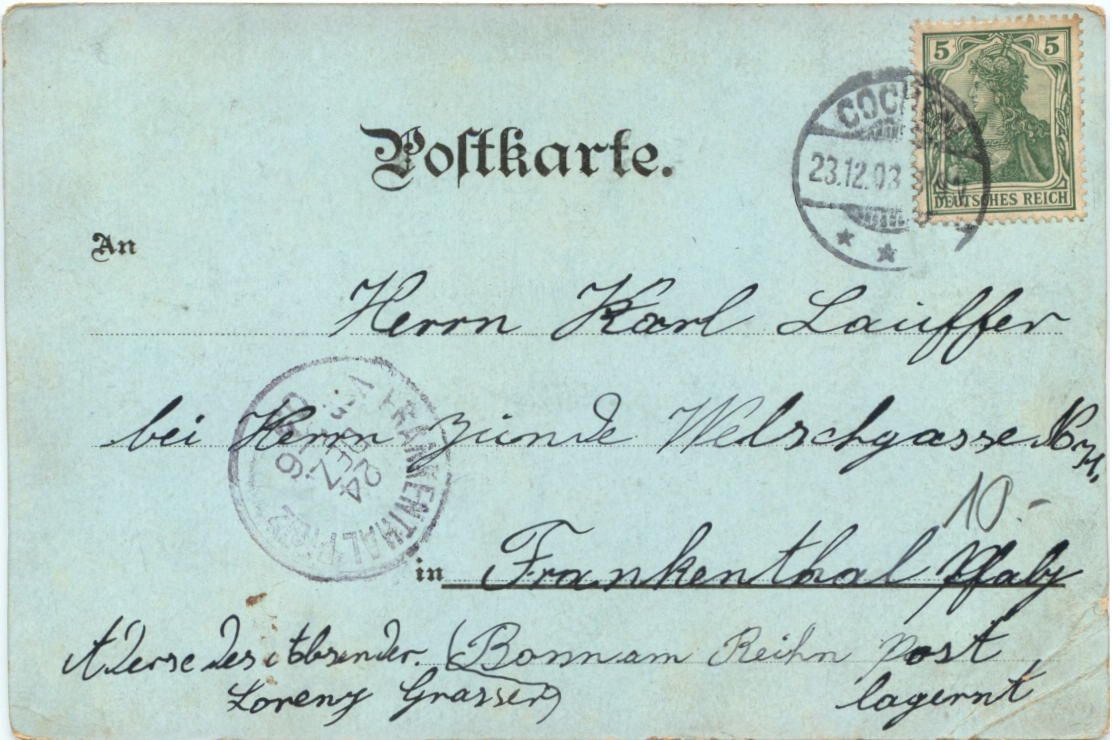 5 5
DEUTSCHES REICH
COCHEM
23.12.03
Postkarte.
An
Herrn Karl Lauffer
bei Herrn Zünde Welschgasse No
10.-
FRANKENTHAL
24 DEZ
in Frankenthal Pfalz
Aderse des Absender. (Bonn am Reihn Post
Lorenz Grasser) lagernt